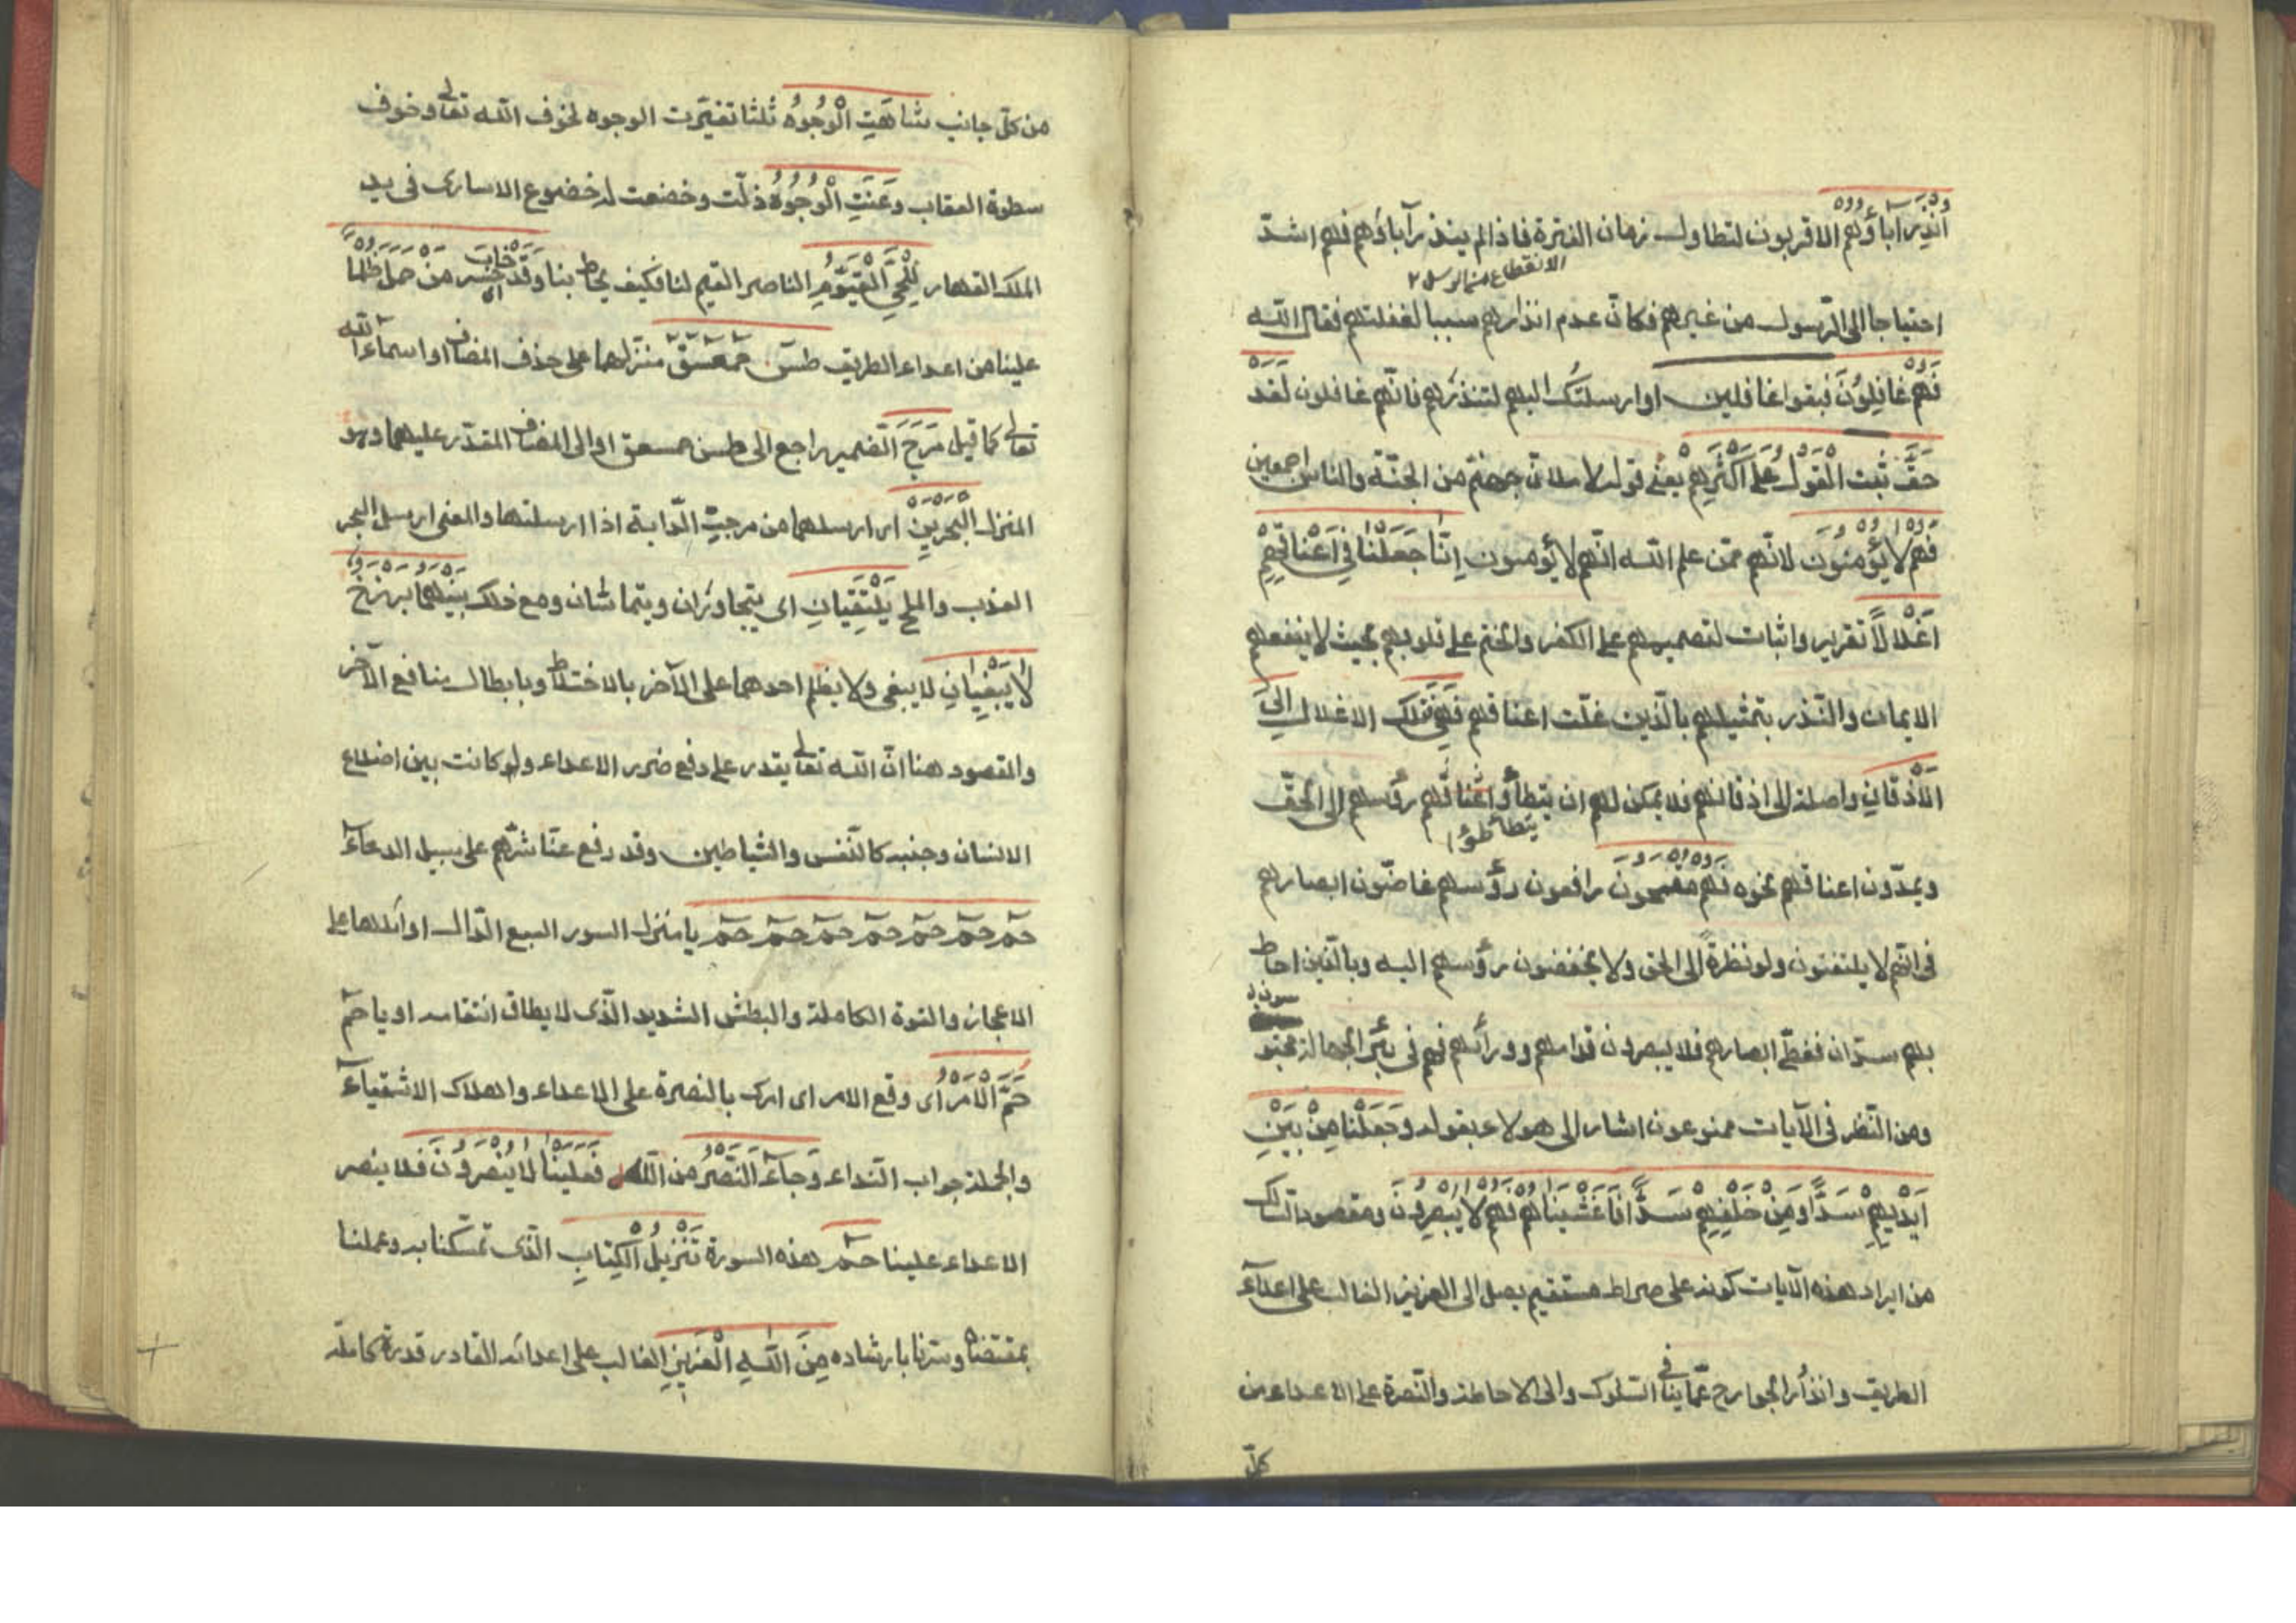 أُنْذِرَ آبَاؤُهُمْ الاقربون لتطاول زمان الفترة فاذا لم ينذر آباؤهم فهم اشدّ
الانقطاع من الرسل ٢
احتياجا الى الرّسول من غيرهم فكانّ عدم انذارهم سببا لغفلتهم فقال الله
فَهُمْ غَافِلُونَ فبقوا غافلين او ارسلتك اليهم لتنذرهم فانّهم غافلون لَقَدْ
حَقَّ ثبت الْقَوْلُ عَلَى أَكْثَرِهِمْ يعنى قوله لاملانّ جهنّم من الجنّة والناس اجمعين
فَهُمْ لَا يُؤْمِنُونَ لانّهم ممّن علم الله انّهم لا يؤمنون إِنَّا جَعَلْنَا فِي أَعْنَاقِهِمْ
أَغْلَالًا تقرير واثبات لتصميمهم على الكفر والختم على قلوبهم بحيث لا ينفعهم
الايمان والنّذر بتمثيلهم بالّذين غلّت اعناقهم فَهِيَ تلك الاغلال إِلَى
الْأَذْقَانِ واصلة الى اذقانهم فلا يمكن لهم ان يتطأوا اعناقهم رؤسهم الى الحقّ
يتطأطؤا
ويمدّون اعناقهم نحوه فَهُمْ مُقْمَحُونَ رافعون رؤسهم غاضّون ابصارهم
فى انّهم لا يلتفتون ولو نظرة الى الحق ولا يخفضون رؤسهم اليه وبالّذين احاط
بهم سدّان فغطّى ابصارهم فلا يبصرون قدامهم وورائهم فهم فى بئر الجهالة محبو
سون
ومن النّظر فى الآيات ممنوعون اشار الى هولاء بقوله وَجَعَلْنَا مِنْ بَيْنِ
أَيْدِيهِمْ سَدًّا وَمِنْ خَلْفِهِمْ سَدًّا فَأَغْشَيْنَاهُمْ فَهُمْ لَا يُبْصِرُونَ ومقصود السّالك
من ايراد هذه الآيات كونه على صراط مستقيم يصل الى العزيز الغالب على اعداء
الطريق وانذار الجوارح عمّا ينافى السّلوك والى الاحاطة والنّصرة على الاعداء من
كلّ
من كلّ جانب شَاهَتِ الْوُجُوهُ ثلثا تغيّرت الوجوه لخوف الله تعالى وخوف
سطوة العقاب وَعَنَتِ الْوُجُوهُ ذلّت وخضعت له خضوع الاسارى فى يد
الملك القهار لِلْحَيِّ الْقَيُّومِ الناصر القيم لنا فكيف يحاط بنا وَقَدْ خَابَ خسر مَنْ حَمَلَ ظُلْمًا
علينا من اعداء الطريق طس حمعسق منزلهما على حذف المضاف او اسماء الله
تعالى كما قيل مَرَجَ الضمير راجع الى طسن حمسعق او الى المضاف المقدّر عليهما وهو
المنزل الْبَحْرَيْنِ اى ارسلهما من مرجت الدّابة اذا ارسلتها والمعنى ارسل البحر
العذب والملح يَلْتَقِيَانِ اى يتجاوران ويتماسّان ومع ذلك بَيْنَهُمَا بَرْزَخٌ
لَا يَبْغِيَانِ لا يبغى ولا يظلم احدهما على الآخر بالاختلاط وبابطال منافع الآخر
والمقصود هنا انّ الله تعالى يقدر على دفع ضرر الاعداء ولو كانت بين اضلاع
الانسان وجنبيه كالنّفس والشياطين وقد رفع عنّا شرّهم على سبيل الدعاء
حم حم حم حم حم حم حم يا منزل السور السبع الدّال اوائلها على
الاعجاز والقوة الكاملة والبطش الشديد الّذى لا يطاق انتقامه او يا حم
حُمَّ الْأَمْرُ اى وقع الامر اى امرك بالنصرة على الاعداء والهلاك الاشقياء
والجملة جواب النّداء وَجَاءَ النَّصْرُ من الله فَعَلَيْنَا لَا يُنْصَرُونَ فلا ينصر
الاعداء علينا حم هذه السورة تَنْزِيلُ الْكِتَابِ الّذى تمسّكنا به وعملنا
بمقتضاه وسرنا بارشاده مِنَ اللَّهِ الْعَزِيزِ الغالب على اعدائه القادر قدرة كاملة